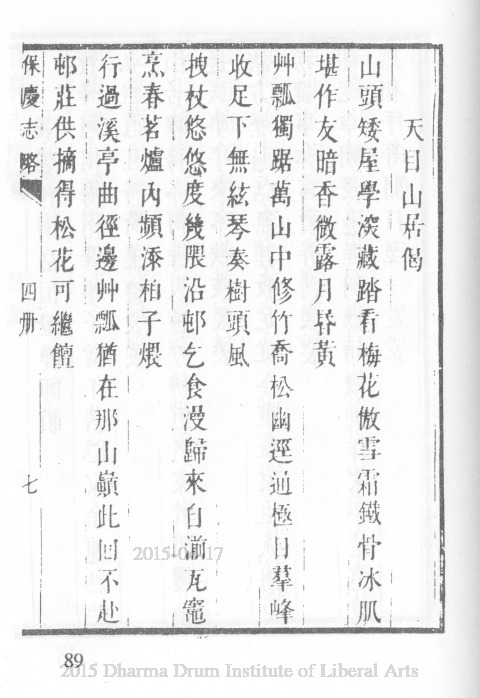 天目山居偈
山頭矮屋學深藏踏看梅花傲雪霜鐵骨冰肌
堪作友暗香微露月昏黃
艸瓢獨踞萬山中修竹喬松幽逕通極目羣峰
收足下無絃琴奏樹頭風
拽杖悠悠度幾隈沿邨乞食漫歸來自湔瓦竈
烹春茗爐內頻添柏子煨
行過溪亭曲徑邊艸瓢猶在那山巔此回不赴
邨莊供摘得松花可繼饘
保慶志略
四册
七
2015-0 17
89
2015 Dharma Drum Institute of Liberal Arts